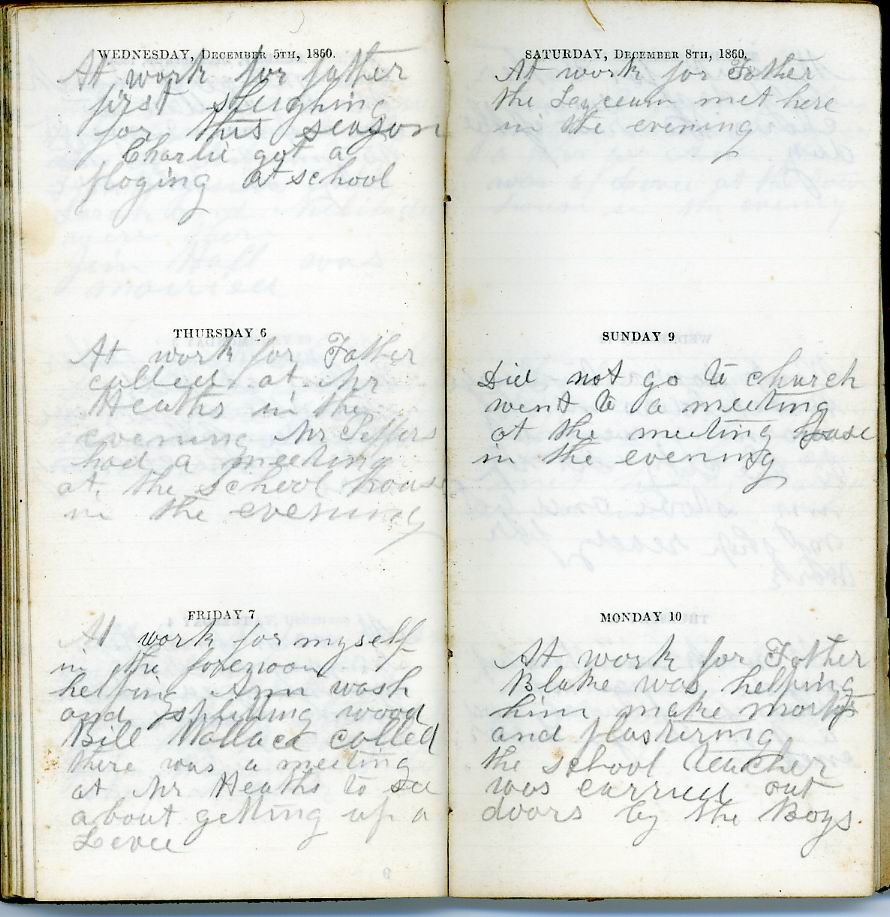 WEDNESDAY, DECEMBER 5TH, 1860.
At work for father
first sleighing
for this season
Charlie got a
floging at school
THURSDAY 6
At work for Father
called at Mr
Heaths in the
evening Mr
had a meeting
at the school house
in the evening
FRIDAY 7
At work for myself
in the forenoon
helping Ann wash
and splitting wood
Bill Wallace called
there was a meeting
at Mr Heaths to see
about getting up a
Levee
SATURDAY, DECEMBER 8TH, 1860.
At work for Father
the Lyceum met here
in the evening
SUNDAY 9
Did not go to church
went to a meeting
at the meeting house
in the evening
MONDAY 10
At work for Father
Blake was helping
him make
and plastering
the school teacher
was carried out
doors by the Boys